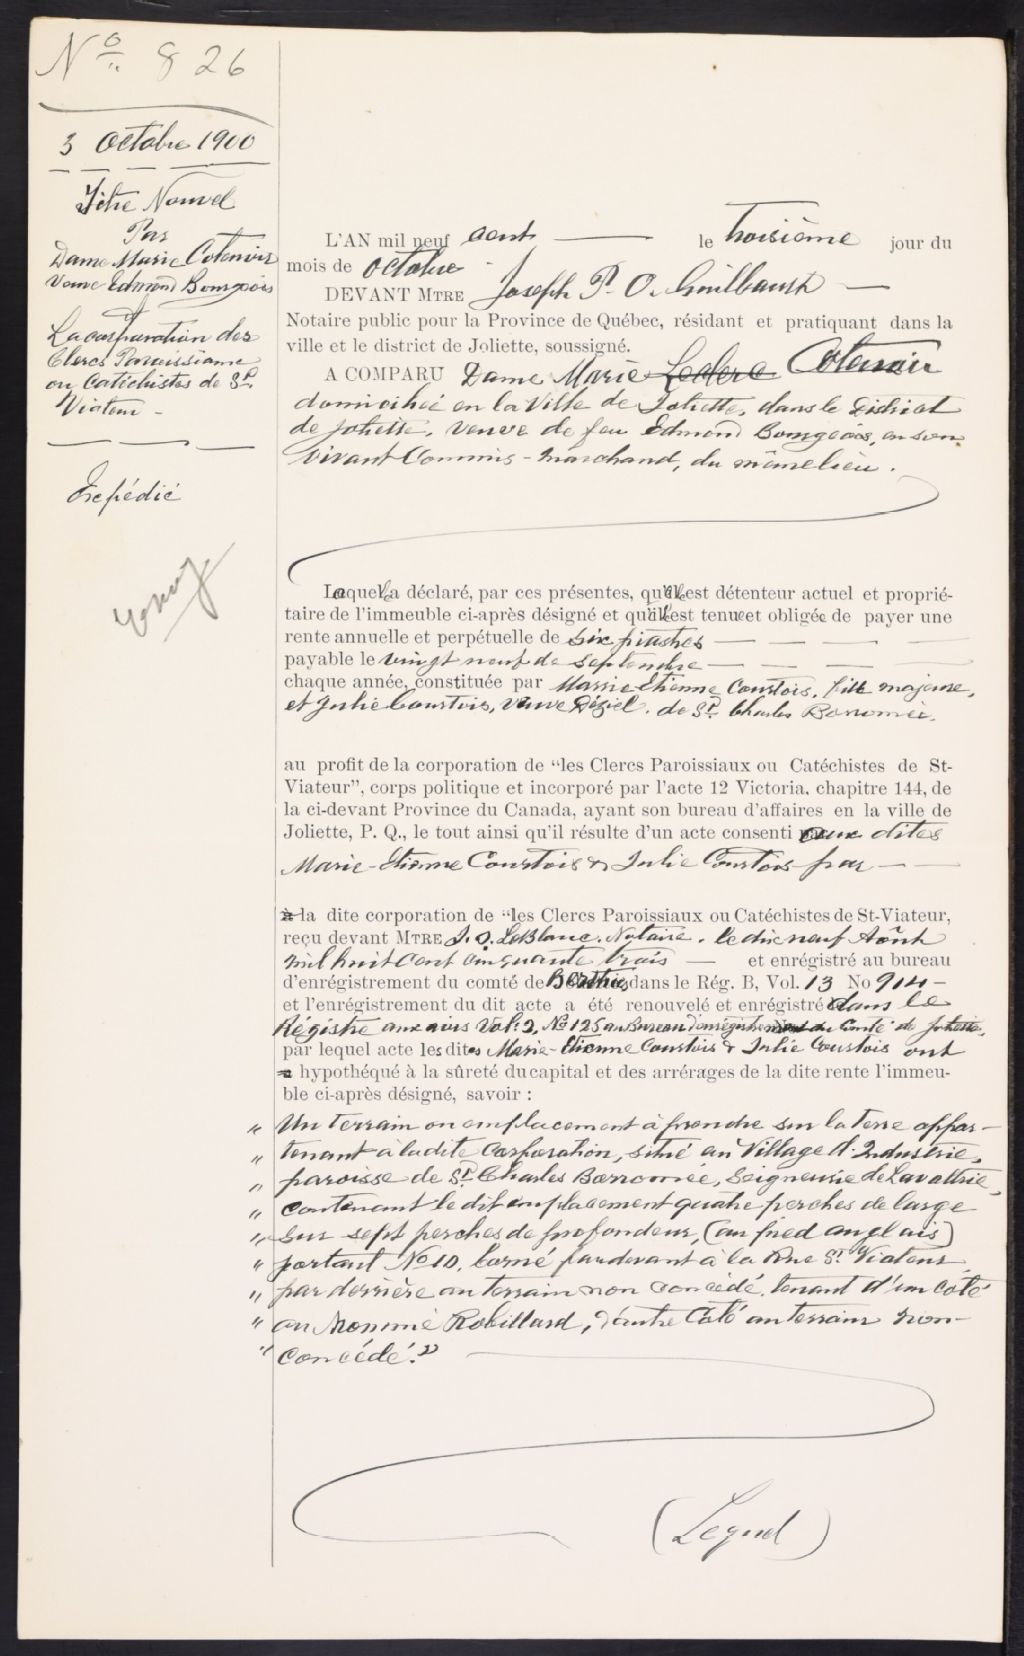 No 826
3 Octobre 1900
Titre Nouvel
Par
Dame Marie Cotenoir
Veuve Edmond Bourgeois
à
La corporation des
Clercs Paroissiaux
ou Catéchistes de St
Viateur -
Expédié
L'AN mil neuf cent — le troisième jour du
mois de Octobre
DEVANT MTRE Joseph P. O. Guilbault —
Notaire public pour la Province de Québec, résidant et pratiquant dans la
ville et le district de Joliette, soussigné.
A COMPARU Dame Marie Leclerc Cotenoir
domiciliée en la Ville de Joliette, dans le District
de Joliette, veuve de feu Edmond Bourgeois, en son
vivant Commis-marchand, du même lieu.
Laquelle a déclaré, par ces présentes, qu'elle est détenteur actuel et proprié-
taire de l'immeuble ci-après désigné et qu'elle est tenue et obligée de payer une
rente annuelle et perpétuelle de six piastres — — —
payable le vingt neuf de septembre — — — —
chaque année, constituée par Marie-Etienne Courtois, fille majeure,
et Julie Courtois, veuve Déziel, de St Charles Borromée,
au profit de la corporation de "les Clercs Paroissiaux ou Catéchistes de St-
Viateur", corps politique et incorporé par l'acte 12 Victoria, chapitre 144, de
la ci-devant Province du Canada, ayant son bureau d'affaires en la ville de
Joliette, P. Q., le tout ainsi qu'il résulte d'un acte consenti aux dites
Marie-Etienne Courtois & Julie Courtois par — —
à la dite corporation de "les Clercs Paroissiaux ou Catéchistes de St-Viateur,
reçu devant MTRE J. O. LeBlanc, Notaire, le dix neuf Août
mil huit cent cinquante trois — et enrégistré au bureau
d'enrégistrement du comté de Berthier dans le Rég. B, Vol. 13 No 914 -
et l'enrégistrement du dit acte a été renouvelé et enrégistré dans le
Régistre aux avis Vol: 2, No 125 au Bureau d'enrégistrement du Comté de Joliette,
par lequel acte les dites Marie-Etienne Courtois & Julie Courtois ont
a hypothéqué à la sûreté du capital et des arrérages de la dite rente l'immeu-
ble ci-après désigné, savoir :
" Un terrain ou emplacement à prendre sur la terre appar-
" tenant à la dite Corporation, situé au Village d'Industrie,
" paroisse de St Charles Borromée, Seigneurie de Lavaltrie,
" contenant le dit emplacement quatre perches de large
" sur sept perches de profondeur, (au pied anglais)
" portant No 10, borné pardevant à la Rue St Viateur
" par derrière au terrain non concédé, tenant d'un côté
" au Nommé Robillard, d'autre côté au terrain non-
" concédé."
(Lequel)